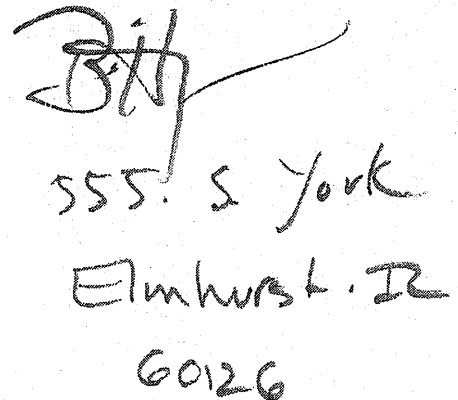 555. S. York
Elmhurst. IL
60126